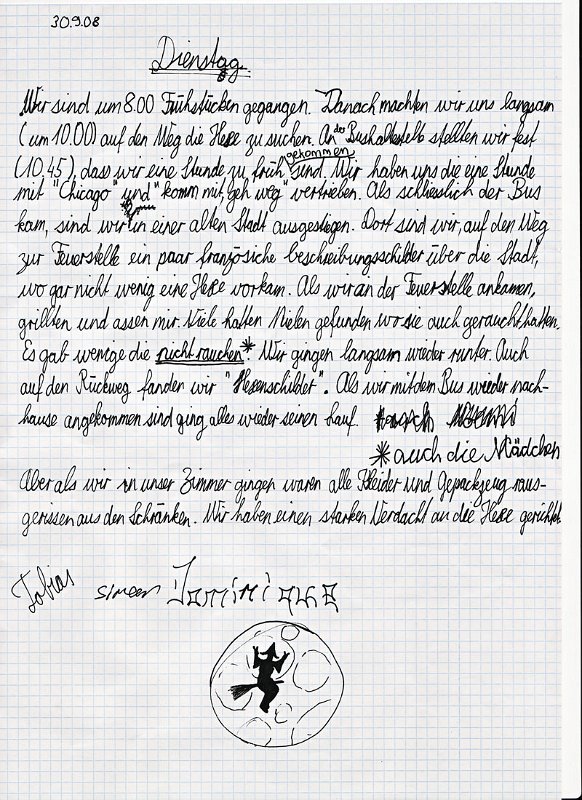 30.9.08
Dienstag
Wir sind um 8.00 Frühstücken gegangen. Danach machten wir uns langsam
(um 10.00) auf den Weg die Hexe zu suchen. An der Bushaltestelle stellten wir fest
(10,45), dass wir eine Stunde zu früh gekommen sind. Wir haben uns die eine Stunde
mit "Chicago" und "komm mit, geh weg" vertrieben. Als schliesslich der Bus
kam, sind wir in einer alten Stadt ausgestiegen. Dort sind wir, auf den Weg
zur Feuerstelle ein paar französiche beschreibungsschilder über die Stadt,
wo gar nicht wenig eine Hexe vorkam. Als wir an der Feuerstelle ankamen,
grillten und assen mir. Viele hatten Nielen gefunden wo sie auch geraucht hatten.
Es gab wenige die nicht rauchen*. Wir gingen langsam wieder runter. Auch
auf den Rückweg fanden wir "Hexenschilder". Als wir mit dem Bus wieder nach-
hause angekommen sind ging alles wieder seinen hauf.
* auch die Mädchen
Aber als wir in unser Zimmer gingen waren alle Kleider und Gepäckzeug raus-
gerissen aus den Schränken. Wir haben einen starken Verdacht an die Hexe gerichtet.
Tobias simeon Dominique